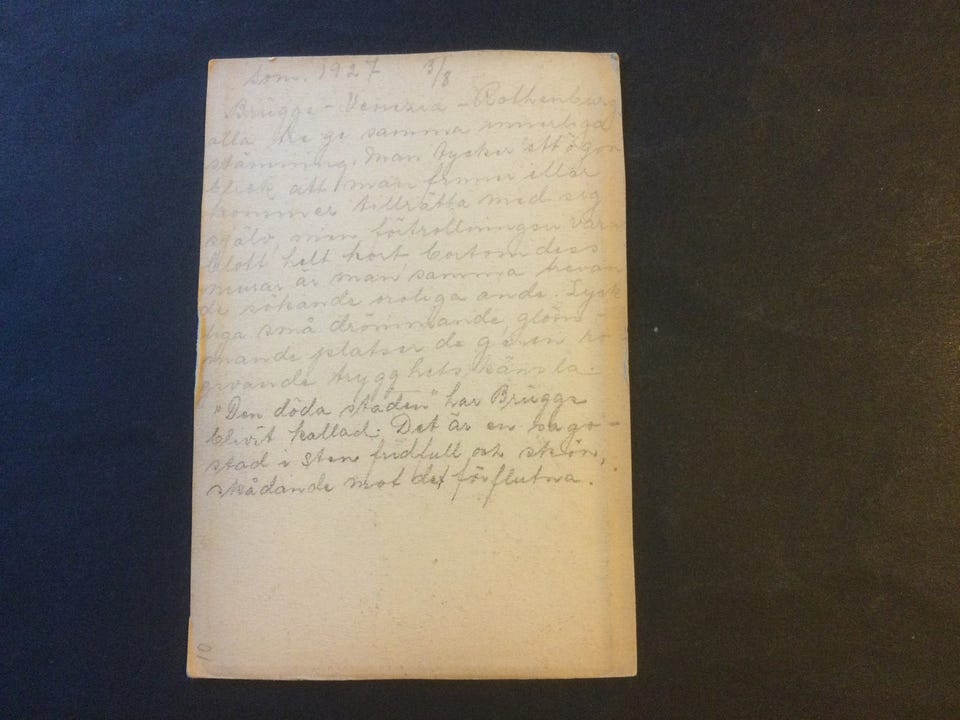 som. 1927 3/8
Brügge - Venezia - Rothenburg
alla tre ge samma innerliga
stämning. Man tycker ett ögon
blick att man finner eller
kommer tillrätta med sig
själv, men förtrollningen varar
blott helt kort bortom dess
murar är man samma
de sökande oroliga ande. Lyck
liga små drömmande, glöm-
mande platser de giva ro-
givande trygghetskänsla.
"Den döda staden" har Brügge
blivit kallad. Det är en sago-
stad i sten fridfull och skön,
skådande mot det förflutna.
10